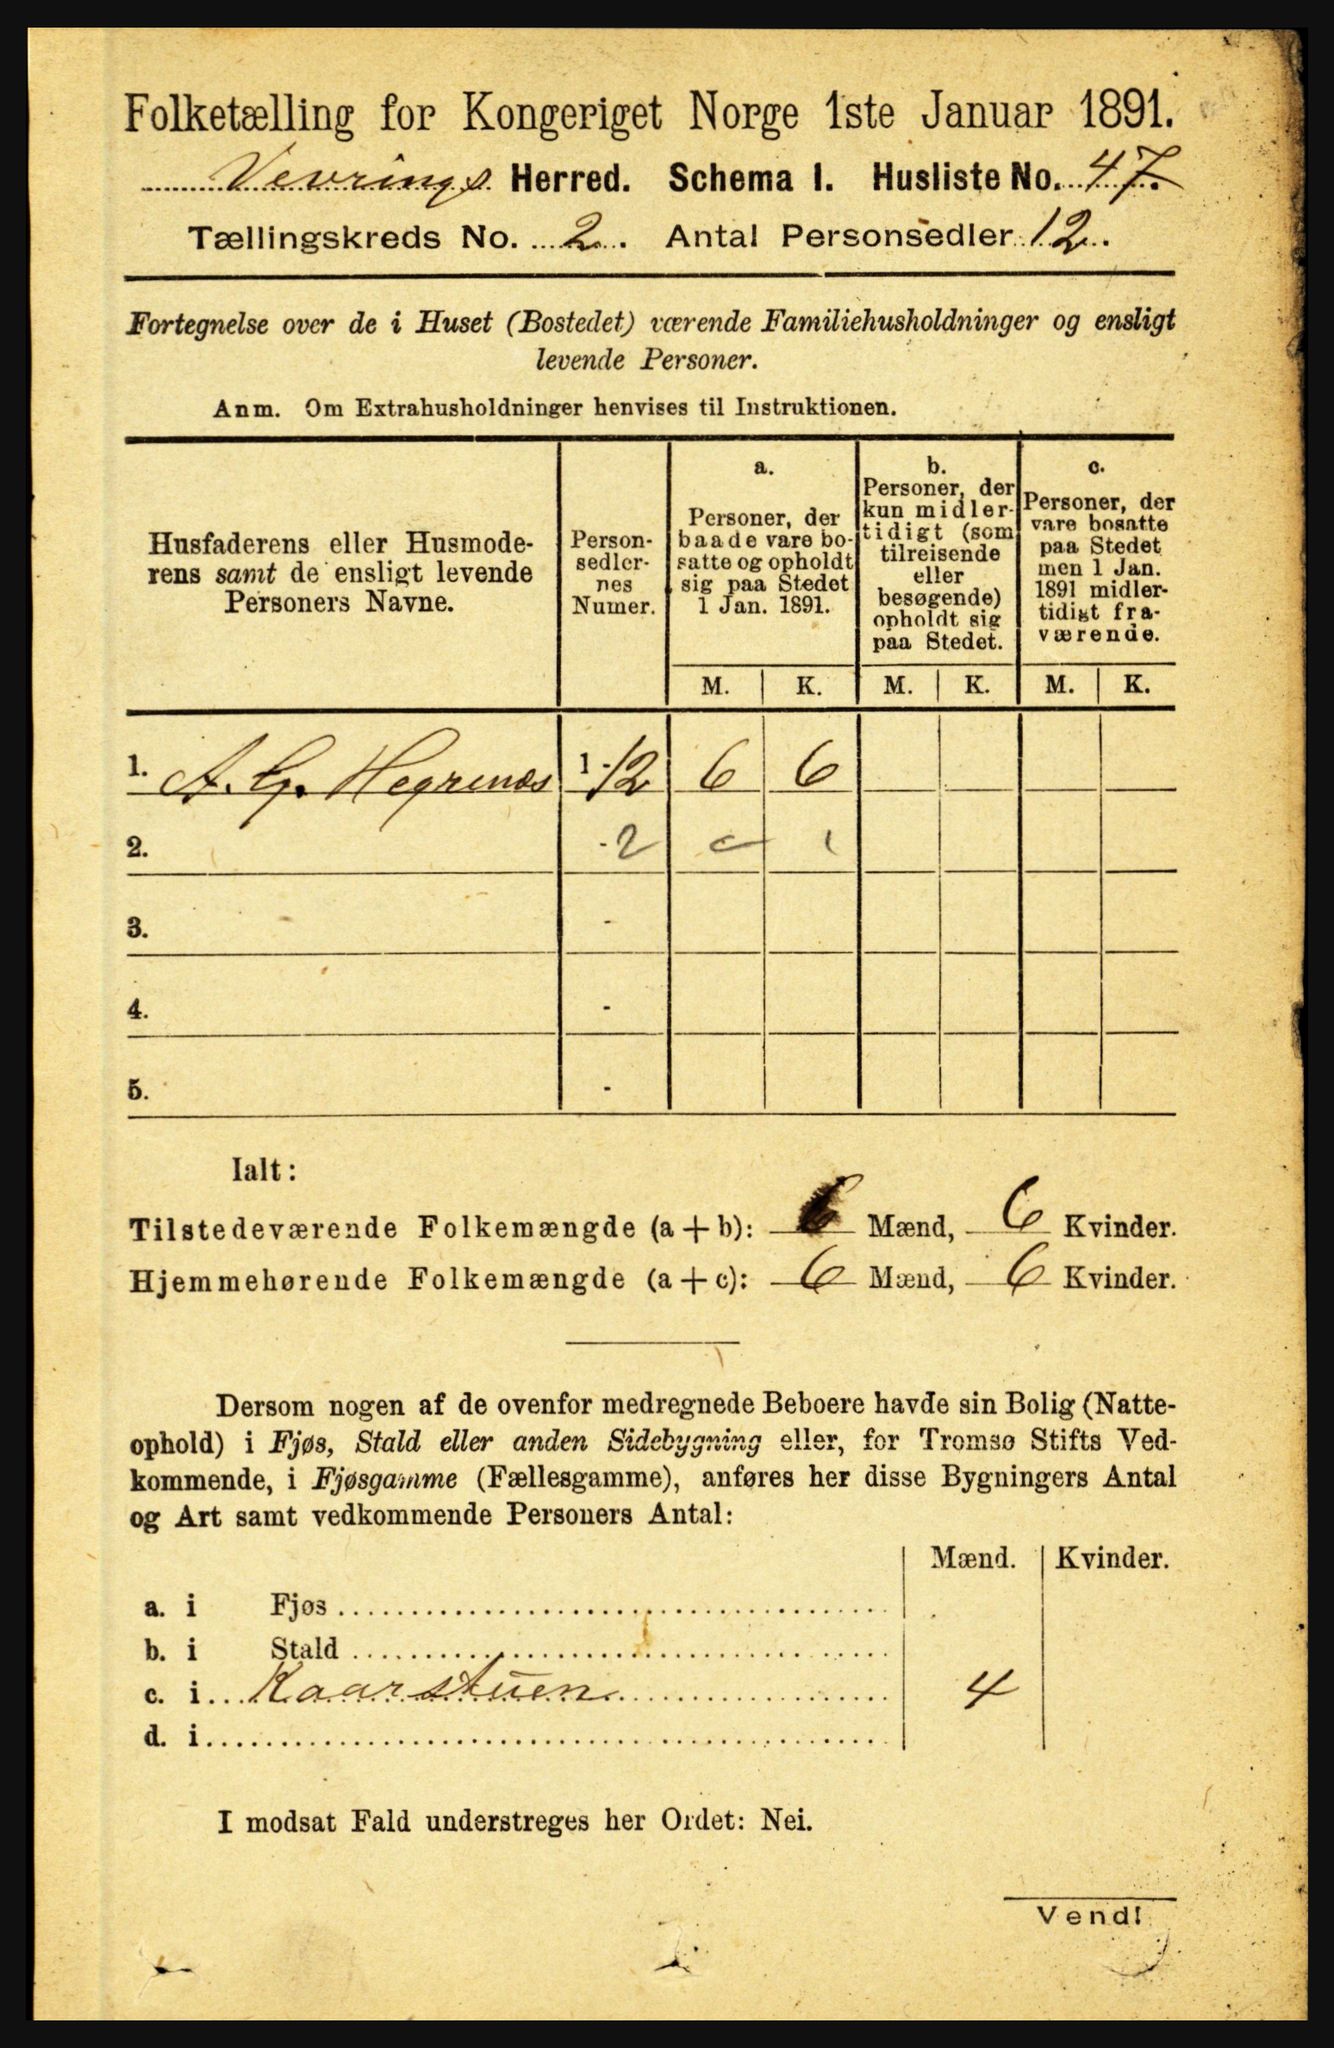 Folketælling for Kongeriget Norge 1ste Januar 1891.
Vevrings Herred. Schema I. Husliste No. 47.
Tællingskreds No. 2. Antal Personsedler 12.
Fortegnelse over de i Huset (Bostedet) værende Familiehusholdninger og ensligt
levende Personer.
Anm. Om Extrahusholdninger henvises til Instruktionen.
Husfaderens eller Husmode-
rens samt de ensligt levende
Personers Navne.
Person-
sedler-
nes
Numer.
a.
Personer, der
baade vare bo-
satte og opholdt
sig paa Stedet
1 Jan. 1891.
b.
Personer, der
kun midler-
tidigt (som
tilreisende
eller
besøgende)
opholdt sig
paa Stedet.
c.
Personer, der
vare bosatte
paa Stedet
men 1 Jan.
1891 midler-
tidigt fra-
værende.
M. K. M. K. M. K.
1. A. G. Hegrenæs 1-12 6 6
2. - 2
3. -
4. -
5. -
Ialt:
Tilstedeværende Folkemængde (a + b): 6 Mænd, 6 Kvinder.
Hjemmehørende Folkemængde (a + c): 6 Mænd, 6 Kvinder.
Dersom nogen af de ovenfor medregnede Beboere havde sin Bolig (Natte-
ophold) i Fjøs, Stald eller anden Sidebygning eller, for Tromsø Stifts Ved-
kommende, i Fjøsgamme (Fællesgamme), anføres her disse Bygningers Antal
og Art samt vedkommende Personers Antal:
Mænd. Kvinder.
a. i Fjøs
b. i Stald
c. i Kaarstuen 4
d. i
I modsat Fald understreges her Ordet: Nei.
Vend!